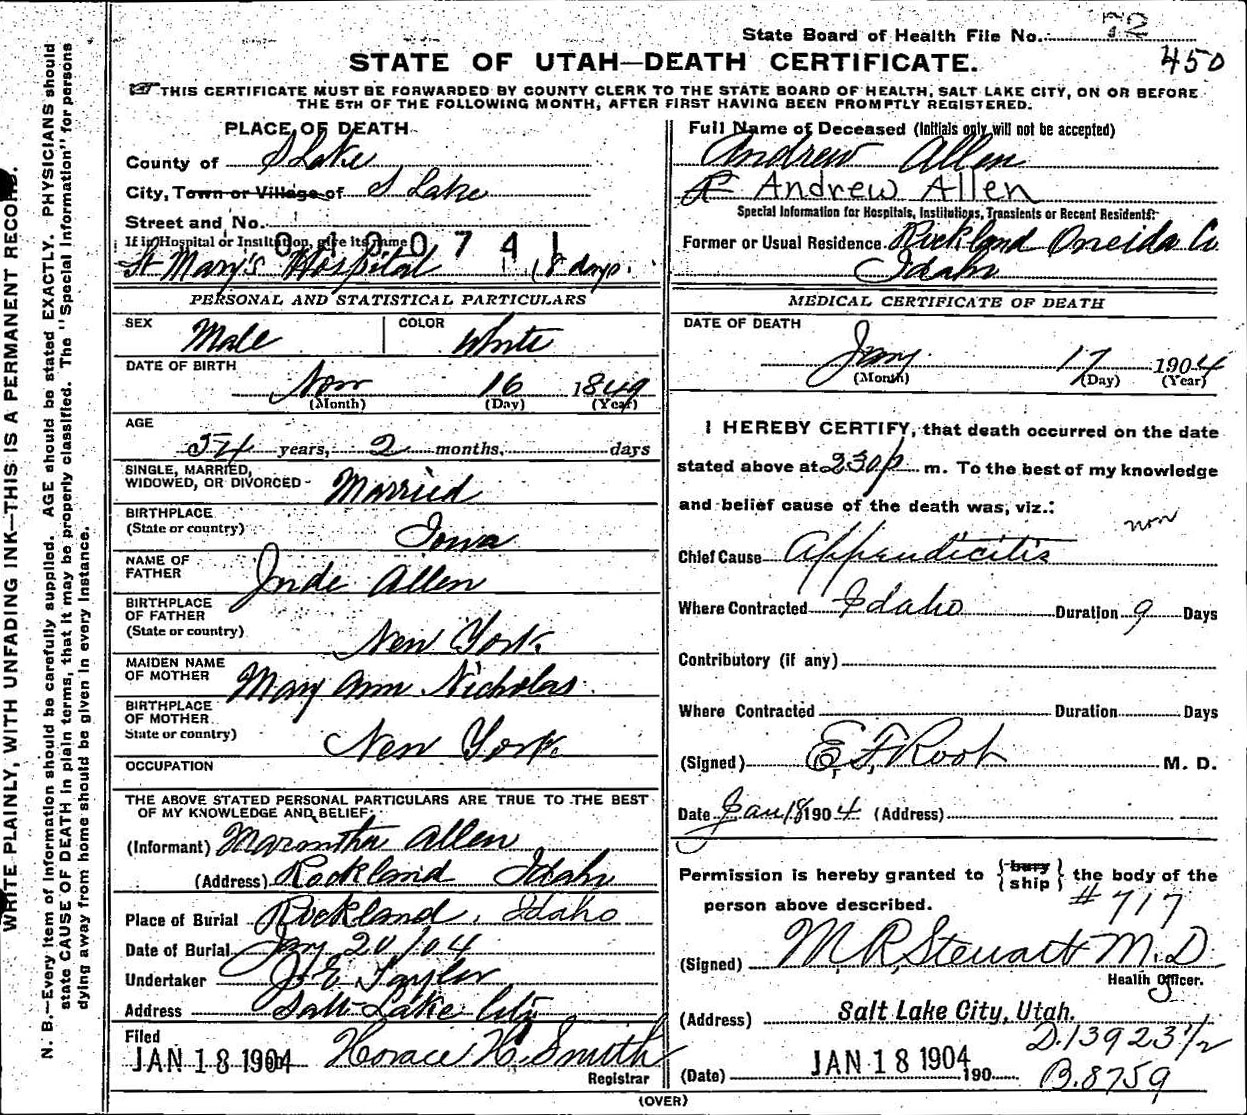 State Board of Health File No. 72
450
STATE OF UTAH—DEATH CERTIFICATE.
THIS CERTIFICATE MUST BE FORWARDED BY COUNTY CLERK TO THE STATE BOARD OF HEALTH, SALT LAKE CITY, ON OR BEFORE
THE 5TH OF THE FOLLOWING MONTH, AFTER FIRST HAVING BEEN PROMPTLY REGISTERED.
WRITE PLAINLY, WITH UNFADING INK—THIS IS A PERMANENT RECORD.
N. B.—Every item of information should be carefully supplied. AGE should be stated EXACTLY. PHYSICIANS should
state CAUSE OF DEATH in plain terms, that it may be properly classified. The "Special Information" for persons
dying away from home should be given in every instance.
PLACE OF DEATH
County of S Lake
City, Town or Village of S Lake
Street and No.
0400741
If in Hospital or Institution, give its name
St Mary's Hospital 8 days.
PERSONAL AND STATISTICAL PARTICULARS
SEX Male COLOR White
DATE OF BIRTH
Nov 16 1849
(Month) (Day) (Year)
AGE
54 years, 2 months, days
SINGLE, MARRIED,
WIDOWED, OR DIVORCED - Married
BIRTHPLACE
(State or country) Iowa
NAME OF
FATHER Jude Allen
BIRTHPLACE
OF FATHER
(State or country) New York
MAIDEN NAME
OF MOTHER Mary Ann Nicholas
BIRTHPLACE
OF MOTHER
State or country) New York
OCCUPATION
THE ABOVE STATED PERSONAL PARTICULARS ARE TRUE TO THE BEST
OF MY KNOWLEDGE AND BELIEF
(Informant) Allen
(Address) Rockland Idaho
Place of Burial Rockland, Idaho
Date of Burial Jany 20/04
Undertaker J E Taylor
Address Salt Lake City
Filed
JAN 18 1904 Horace H. Smith
Registrar
Full Name of Deceased (Initials only will not be accepted)
Andrew Allen
Andrew Allen
Special Information for Hospitals, Institutions, Transients or Recent Residents:
Former or Usual Residence Rockland Oneida Co
Idaho
MEDICAL CERTIFICATE OF DEATH
DATE OF DEATH
Jany 17 1904
(Month) (Day) (Year)
I HEREBY CERTIFY, that death occurred on the date
stated above at 230 p m. To the best of my knowledge
and belief cause of the death was, viz.:
Chief Cause Appendicitis
Where Contracted Idaho Duration 9 Days
Contributory (if any)
Where Contracted Duration Days
(Signed) E. F. Root M. D.
Date Jan 18 1904 (Address)
Permission is hereby granted to {bury ship} the body of the
person above described. # 717
(Signed) M. R. Stewart M. D
Health Officer.
(Address) Salt Lake City, Utah.
D.13923 1/2
(Date) JAN 18 1904 190
B.8759
(OVER)